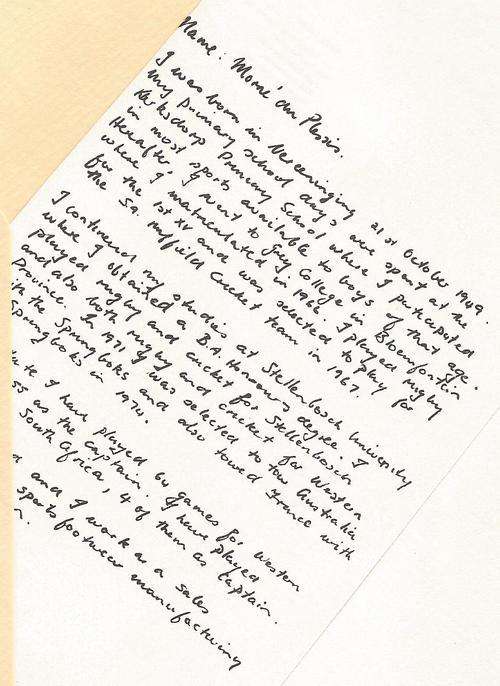 Name: Morné du Plessis.
I was born in Vereeniging 21st October 1949.
My primary school days were spent at the
Klerksdorp Primary School where I participated
in most sports available to boys of that age.
Hereafter, I went to Grey College in Bloemfontein
where I matriculated in 1966. I played rugby
for the 1st XV and was selected to play for
the S.A. Nuffield Cricket team in 1967.
I continued my studies at Stellenbosch University
where I obtained a B.A. Honours degree. I
played rugby and cricket for Stellenbosch
and also both rugby and cricket for Western
Province. In 1971 I was selected to tour Australia
with the Springboks and also toured France with
Springboks in 1974.
I have played 64 games for Western
55 as the captain. I have played
South Africa, 4 of them as captain.
and I work as a sales
sports footwear manufacturing